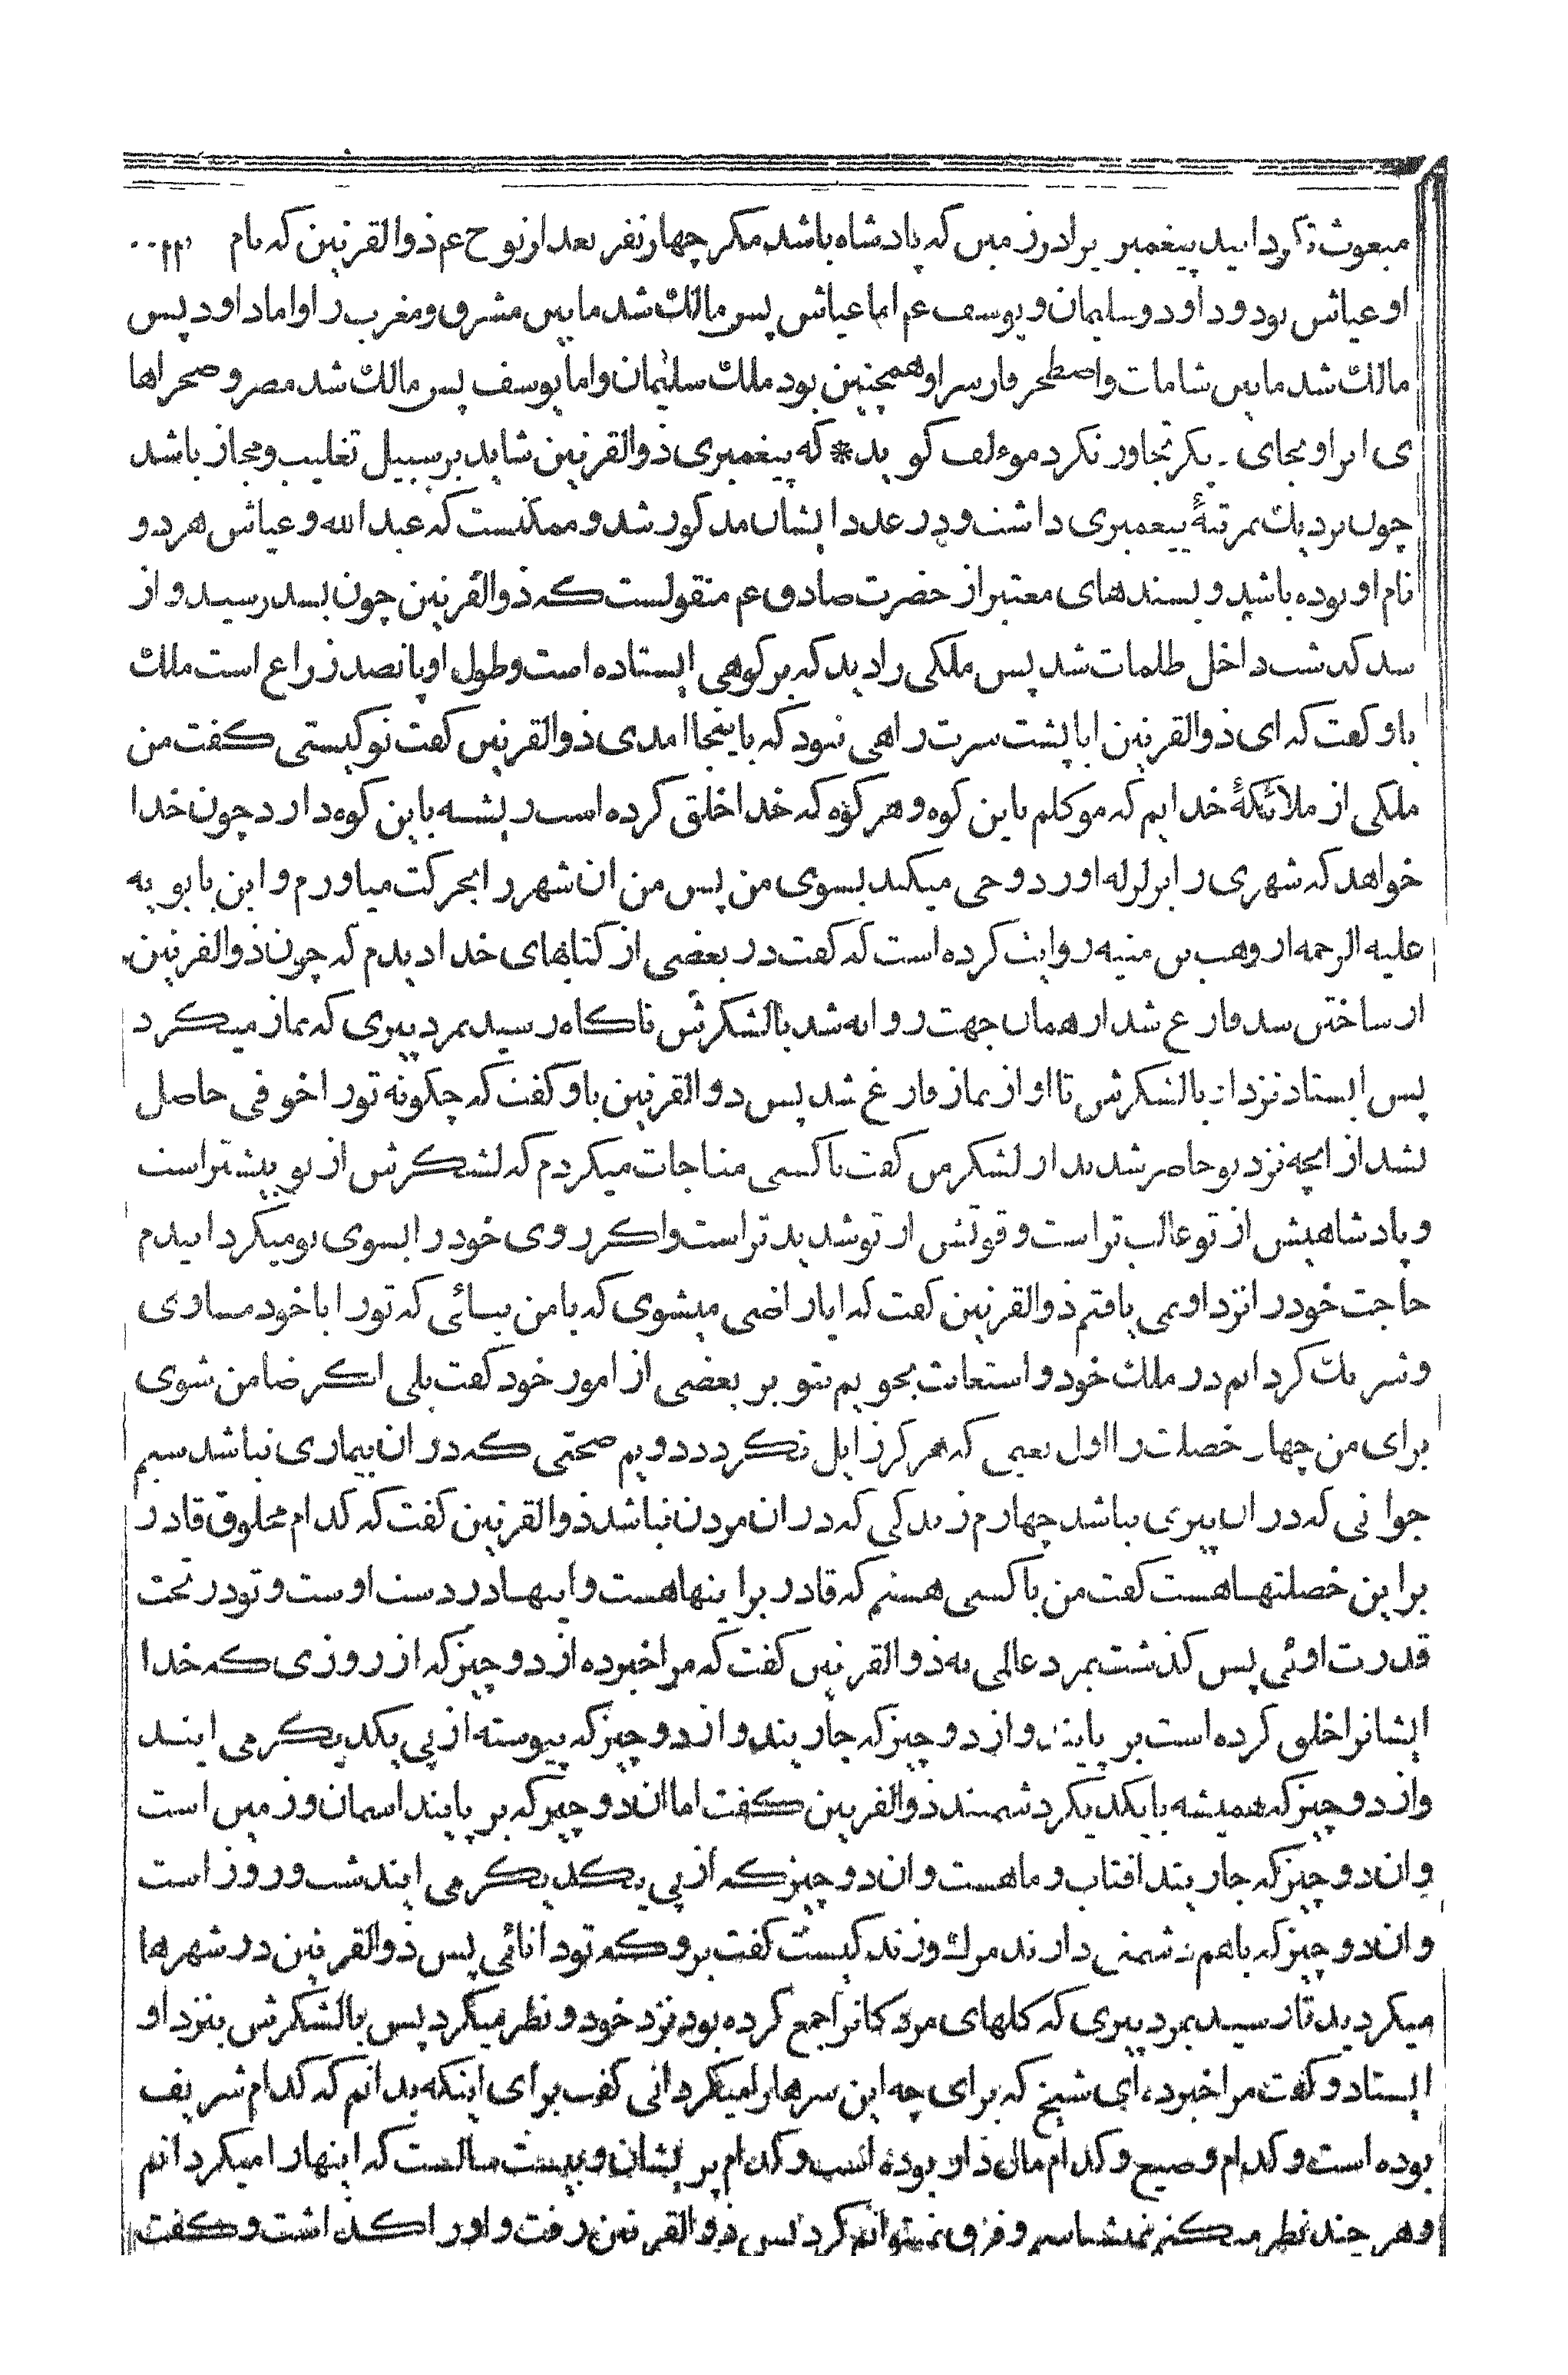 مبعوث نكردانيد پيغمبر برا در زمين كه پادشاه باشد مكر چهار نفر بعد از نوح عم ذوالقرنين كه نام
او عياش بود و داود و سليمان و يوسف عم اما عياش پس مالك شد مابين مشرق و مغرب را و اما داود پس
مالك شد مابين شامات و اصطخر فارس را و همچنين بود ملك سليمان و اما يوسف پس مالك شد مصر و صحراها
ى ابرا و بجاى ديكر تجاوز نكرد موءلف كويد * كه پيغمبرى ذوالقرنين شايد بر سبيل تغليب و مجاز باشد
چون نزديك بمرتبهٔ پيغمبرى داشت و در عدد ايشان مذكور شد و ممكنست كه عبدالله و عياش هر دو
نام او بوده باشد و بسندهاى معتبر از حضرت صادق عم منقولست كه ذوالقرنين چون بسد رسيد و از
سد كذشت داخل ظلمات شد پس ملكى را ديد كه بر كوهى ايستاده است و طول او پانصد زراع است ملك
باو كفت كه اى ذوالقرنين ايا پشت سرت راهى نبود كه باينجا امدى ذوالقرنين كفت تو كيستى كفت من
ملكى از ملائكهٔ خدايم كه موكلم باين كوه و هر كوه كه خدا خلق كرده است ريشه باين كوه دارد چون خدا
خواهد كه شهرى را بزلزله اورد وحى ميكند بسوى من پس من ان شهر را بحركت مياورم و ابن بابويه
عليه الرحمه از وهب بن منبه روايت كرده است كه كفت در بعضى از كتابهاى خدا ديدم كه چون ذوالقرنين
از ساختن سد فارغ شد از همان جهت روانه شد بالشكرش ناكاه رسيد بمرد پيرى كه نماز ميكرد
پس ايستاد نزد او بالشكرش تا او از نماز فارغ شد پس ذوالقرنين باو كفت كه چكونه تو را خوفى حاصل
نشد از انچه نزد تو حاضر شدند از لشكر من كفت با كسى مناجات ميكردم كه لشكرش از تو بيشتر است
و پادشاهيش از تو غالب تر است و قوتش از تو شديد تر است و اكر روى خود را بسوى تو ميكردانيدم
حاجت خود را نزد او نمى يافتم ذوالقرنين كفت كه ايا راضى ميشوى كه با من بيائى كه تو را با خود مساوى
و شريك كردانم در ملك خود و استعانت بجويم بتو بر بعضى از امور خود كفت بلى اكر ضامن شوى
براى من چهار خصلت را اول نعيمى كه هركز زايل نكردد دويم صحتى كه در ان بيمارى نباشد سيم
جوانى كه در ان پيرى نباشد چهارم زندكى كه در ان مردن نباشد ذوالقرنين كفت كه كدام مخلوق قادر
بر اين خصلتها هست كفت من با كسى هستم كه قادر بر اينها هست و اينها در دست اوست و تو در تحت
قدرت اوئى پس كذشت بمرد عالمى به ذوالقرنين كفت كه مرا خبر ده از دو چيز كه از روزى كه خدا
ايشانرا خلق كرده است بر پايند و از دو چيز كه جاريند و از دو چيز كه پيوسته از پى يكديكر مى ايند
و از دو چيز كه هميشه با يكديكر دشمنند ذوالقرنين كفت اما ان دو چيز كه بر پايند اسمان و زمين است
و ان دو چيز كه جاريند افتاب و ماهست و ان دو چيز كه از پى يكديكر مى ايند شب و روز است
و ان دو چيز كه باهم دشمنى دارند مرك و زندكيست كفت برو كه تو دانائى پس ذوالقرنين در شهرها
ميكرديد تا رسيد بمرد پيرى كه كلهاى مردكانرا جمع كرده بود نزد خود و نظر ميكرد پس بالشكرش بنزد او
ايستاد و كفت مرا خبر ده اى شيخ كه براى چه اين سرها را ميكردانى كفت براى اينكه بدانم كه كدام شريف
بوده است و كدام وضيع و كدام مال دار بوده است و كدام پريشان و بيست سالست كه اينها را ميكردانم
و هر چند نظر ميكنم نميشناسم و فرق نميتوانم كرد پس ذوالقرنين رفت و او را كذاشت و كفت